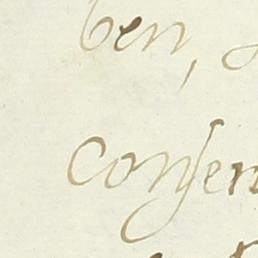 ben,
conſen